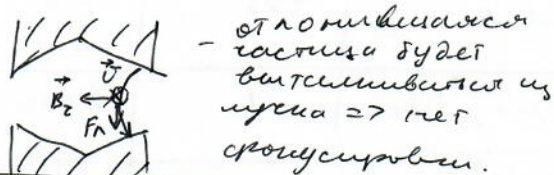 - отклонившаяся
частица будет
выталкиваться из
пучка => нет
фокусировки.
v
B_z
F_л